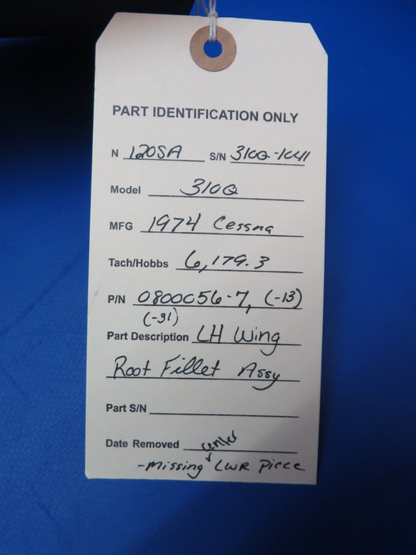 PART IDENTIFICATION ONLY
N 120SA S/N 310Q-1041
Model 310Q
MFG 1974 Cessna
Tach/Hobbs 6,179.3
P/N 0800056-7, (-13)
(-31)
Part Description LH Wing
Root Fillet Assy
Part S/N
Date Removed
center
-missing LWR Piece